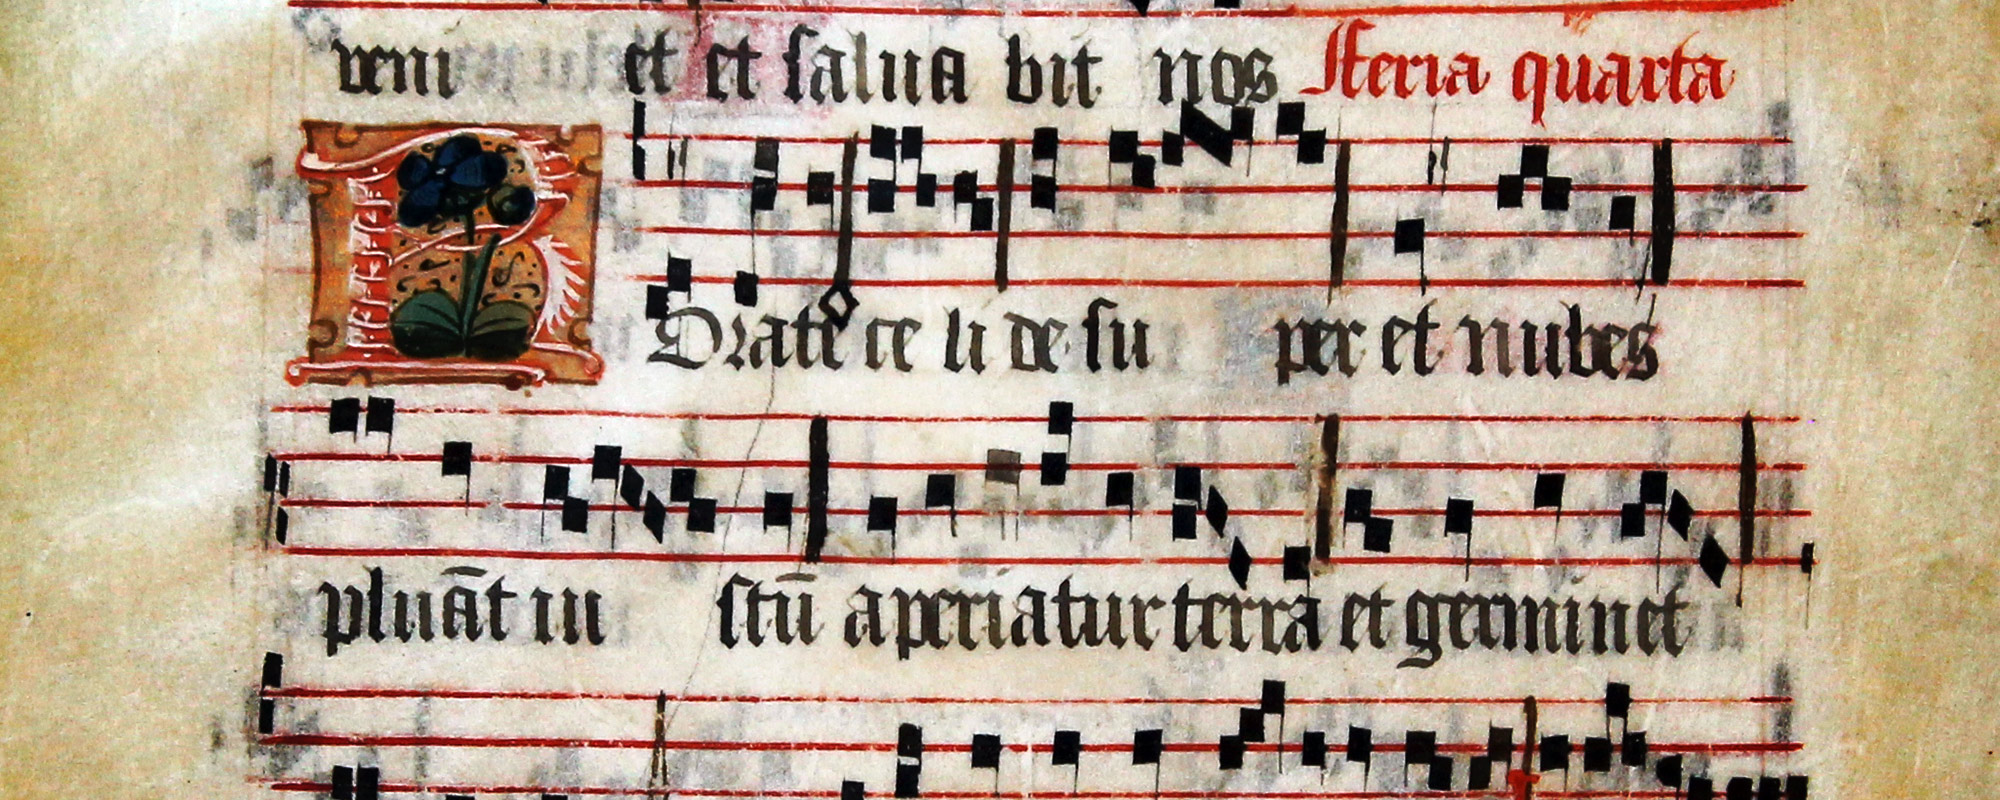 veniet et salua bit nos feria quarta
Orate celi de su per et nubes
pluāt iu stū aperiatur terra et germinet